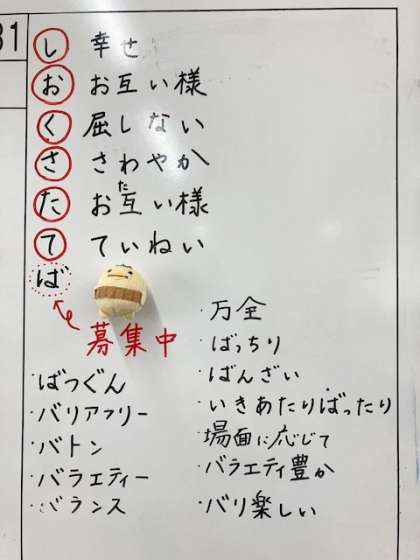 31
し 幸せ
お お互い様
く 屈しない
さ さわやか
た お互い様
た
て ていねい
ば
募集中
ばつぐん
バリアフリー
バトン
バラエティー
バランス
万全
ばっちり
ばんざい
いきあたりばったり
場面に応じて
バラエティ豊か
バリ楽しい